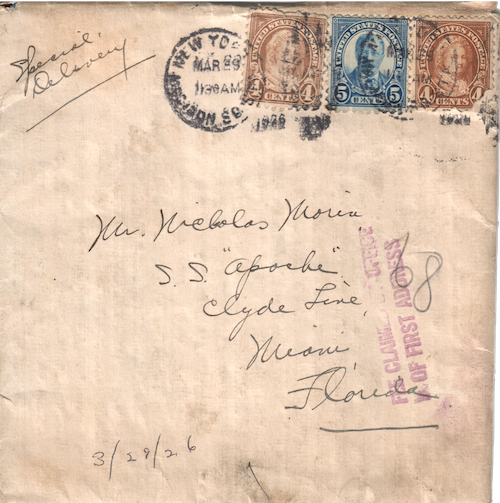 Special
Delivery
NEW YORK
MAR 29
1130AM
MADISON SQ. STA.
1926
UNITED STATES POSTAGE
4 CENTS 4
UNITED STATES POSTAGE
5 CENTS 5
UNITED STATES POSTAGE
4 CENTS 4
Mr. Nicholas Morin
S.S. "Apache"
Clyde Line,
Miami
Florida
68
OF FIRST ADDRESS
3/29/26